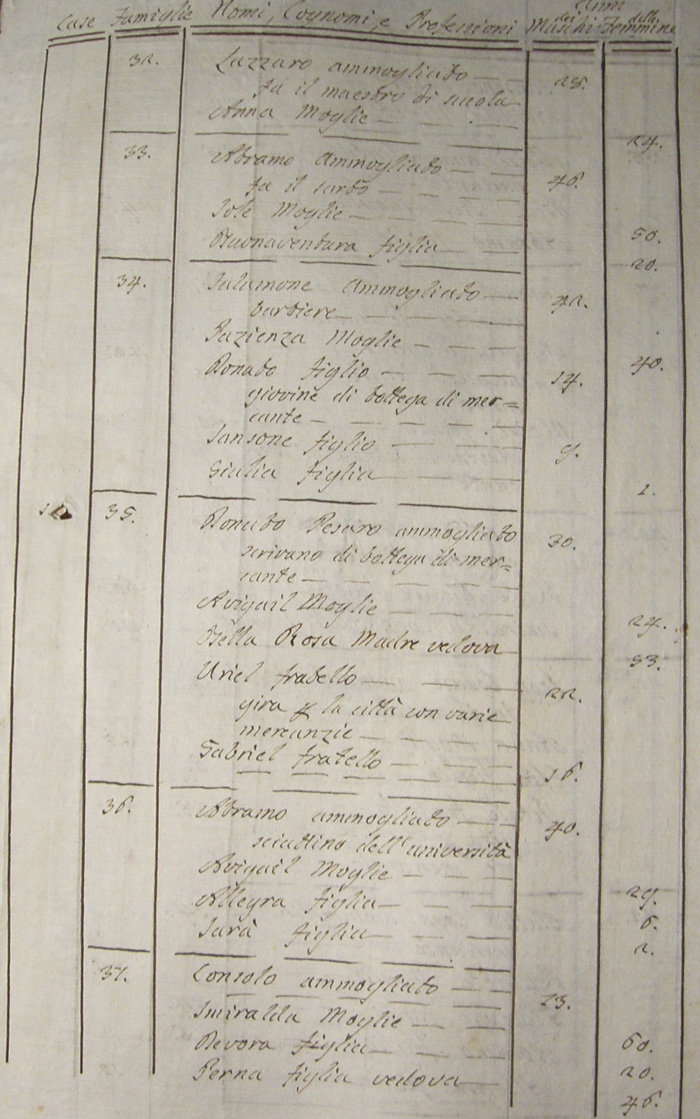 Case Famiglie Nomi, Cognomi, e Professioni Anni dei Maschi delle Femmine
32. Lazzaro ammogliato 28.
fa il maestro di scuola
Anna Moglie 24.
33. Abramo ammogliato 46.
fa il sarto
Sole Moglie 50.
Buonaventura figlia 20.
34. Salamone ammogliato 42.
barbiere
Pazienza Moglie 40.
Donato figlio 14.
giovine di bottega di mer=
cante
Sansone figlio 9.
Giulia figlia 1.
35. Donato Pesaro ammogliato 30.
scrivano di bottega di mer=
cante
Avigail Moglie 24.
Bella Rosa Madre vedova 53.
Uriel fratello 22.
gira p la città con varie
mercanzie
Gabriel fratello 16.
36. Abramo ammogliato 40.
sciattino dell'università
Avigail Moglie 29.
Allegra figlia 6.
Sarà figlia 2.
37. Consolo ammogliato 73.
Smiralda Moglie 60.
Devora figlia 20.
Perna figlia vedova 46.